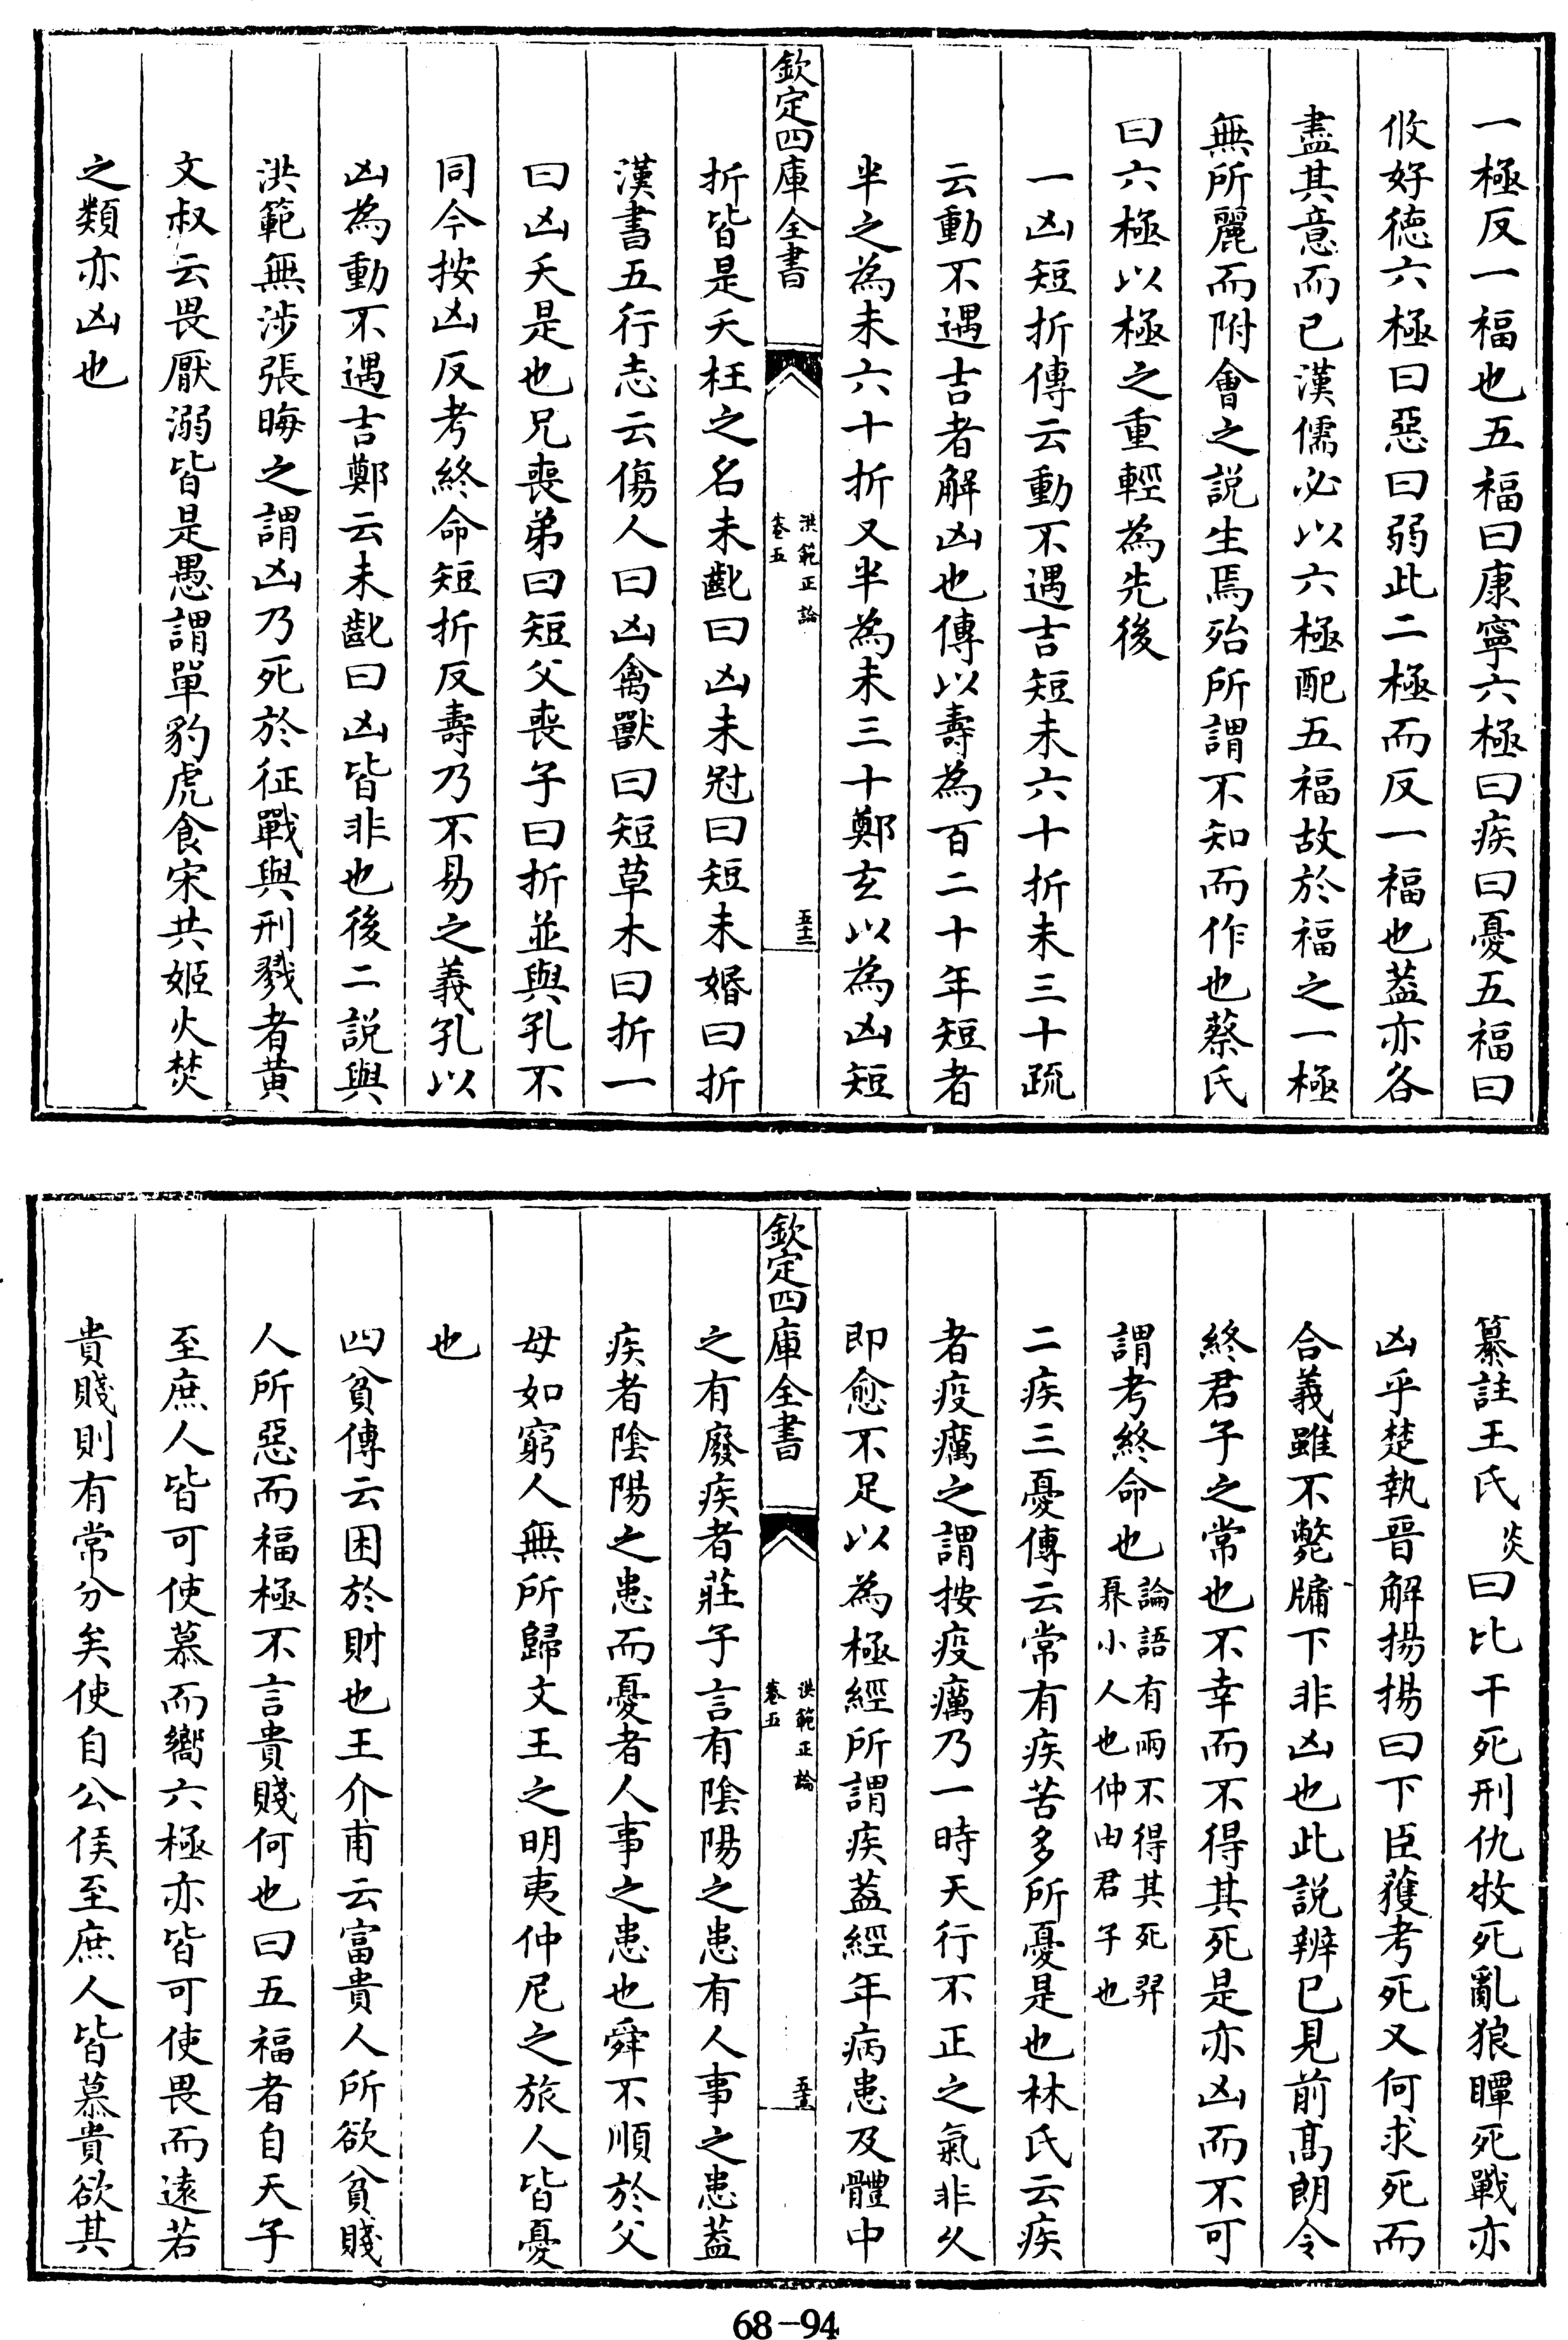 一極反一福也五福曰康寧六極曰疾曰憂五福曰
攸好徳六極曰惡曰弱此二極而反一福也葢亦各
盡其意而已漢儒必以六極配五福故於福之一極
無所麗而附會之説生焉殆所謂不知而作也蔡氏
曰六極以極之重輕為先後
一凶短折傳云動不遇吉短未六十折未三十疏
云動不遇吉者解凶也傳以壽為百二十年短者
半之為未六十折又半為未三十鄭玄以為凶短
欽定四庫全書
洪範正論
卷五
五十二
折皆是夭枉之名未齔曰凶未冠曰短未婚曰折
漢書五行志云傷人曰凶禽獸曰短草木曰折一
曰凶夭是也兄喪弟曰短父喪子曰折並與孔不
同今按凶反考終命短折反壽乃不易之義孔以
凶為動不遇吉鄭云未齔曰凶皆非也後二説與
洪範無涉張晦之謂凶乃死於征戰與刑戮者黄
文叔云畏厭溺皆是愚謂單豹虎食宋共姬火焚
之類亦凶也
纂註王氏炎曰比干死刑仇牧死亂狼瞫死戰亦
凶乎楚執晉解揚揚曰下臣獲考死又何求死而
合義雖不斃牖下非凶也此説辨已見前髙朗令
終君子之常也不幸而不得其死是亦凶而不可
謂考終命也論語有兩不得其死羿
奡小人也仲由君子也
二疾三憂傳云常有疾苦多所憂是也林氏云疾
者疫癘之謂按疫癘乃一時天行不正之氣非久
即愈不足以為極經所謂疾葢經年病患及體中
欽定四庫全書
洪範正論
卷五
五十三
之有廢疾者莊子言有陰陽之患有人事之患葢
疾者陰陽之患而憂者人事之患也舜不順於父
母如窮人無所歸文王之明夷仲尼之旅人皆憂
也
四貧傳云困於財也王介甫云富貴人所欲貧賤
人所惡而福極不言貴賤何也曰五福者自天子
至庶人皆可使慕而嚮六極亦皆可使畏而逺若
貴賤則有常分矣使自公侯至庶人皆慕貴欲其
68-94